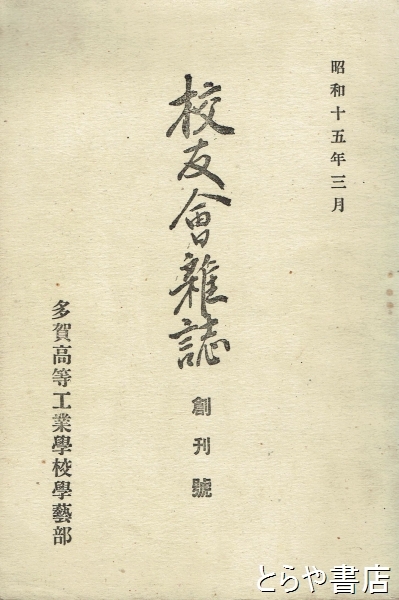 昭和十五年三月
校友會雜誌
創刊號
多賀高等工業學校學藝部
とらや書店